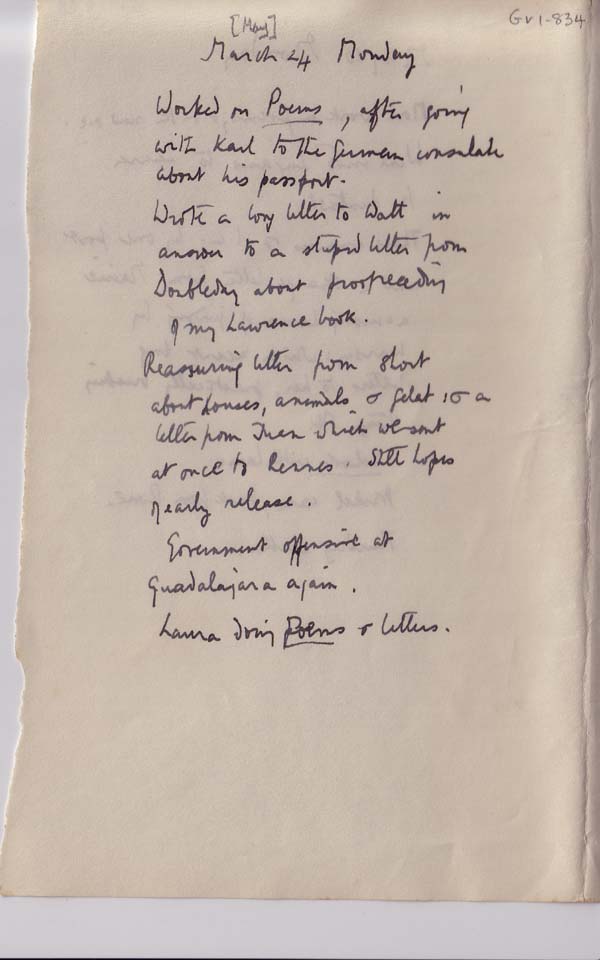 GV1-834
[May]
March 24 Monday
Worked on Poems, after going
with Karl to the German consulate
about his passport.
Wrote a long letter to Watt in
answer to a stupid letter from
Doubleday about proofreading
of my Lawrence book.
Reassuring letter from Short
about houses, animals & Gelat & a
letter from Juan which we sent
at once to Rennes. Still hopes
of early release.
Government offensive at
Guadalajara again.
Laura doing Poems & letters.